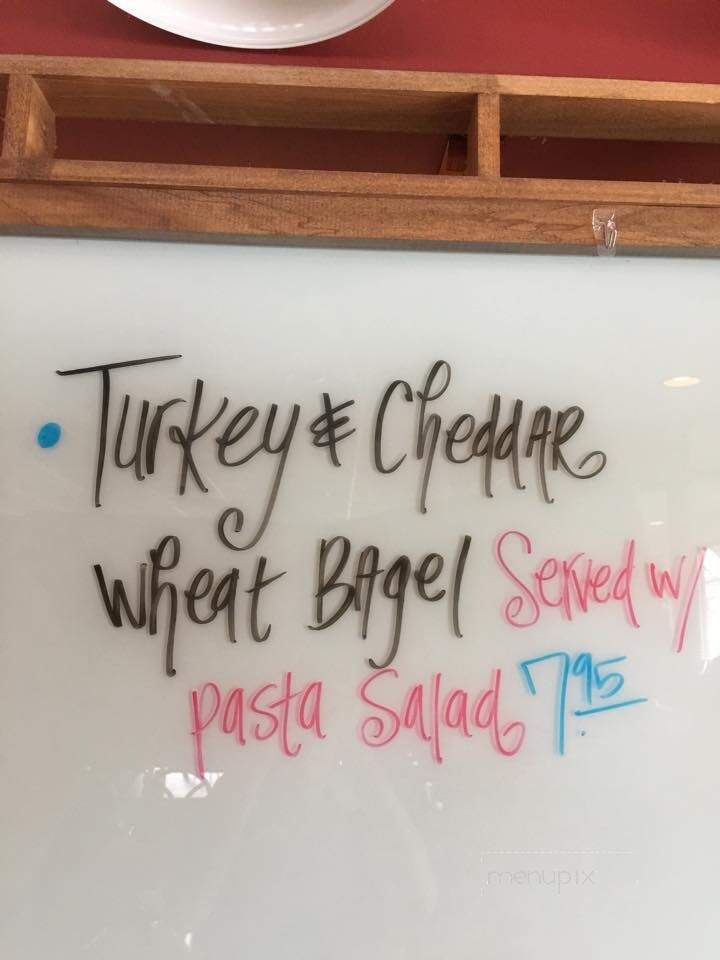 • Turkey & Cheddar
Wheat Bagel Served w/
pasta Salad 7.95
menupix